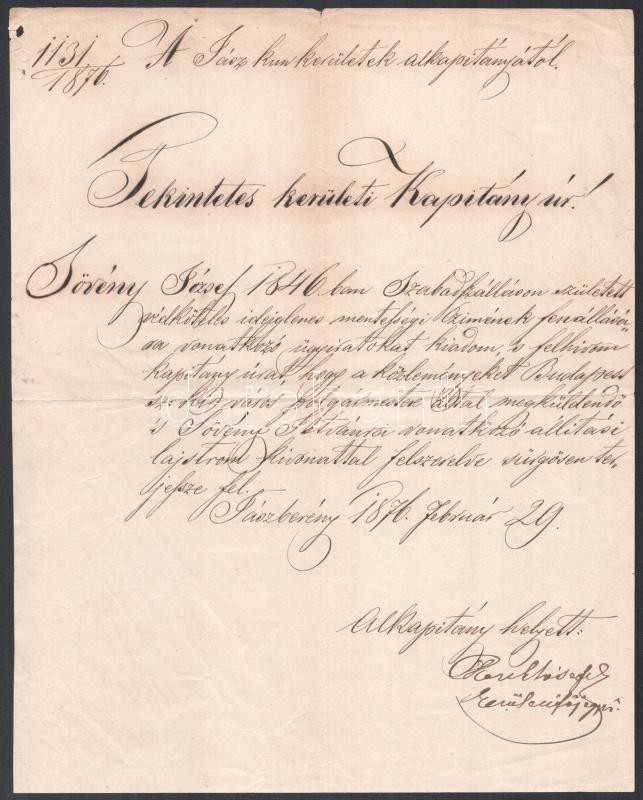 1131
1876.
A Jász kun kerületek alkapitányától.
Tekintetes kerületi Kapitány úr!
Sövény József 1846.ban Szabadszálláson született
védköteles ideiglenes mentességi Czimének fenállásá
ra vonatkozó ügyiratokat kiadom, s felhivom
kapitány urat, hogy a közleményeket Budapest
fő város polgármestere által megküldendő
s Sövény Istvánra vonatkozó allitási
lajstrom kivonattal felszerelve sürgösen ter,
jessze fel.
Jászberény 1876. február 29.
Alkapitány helyett: